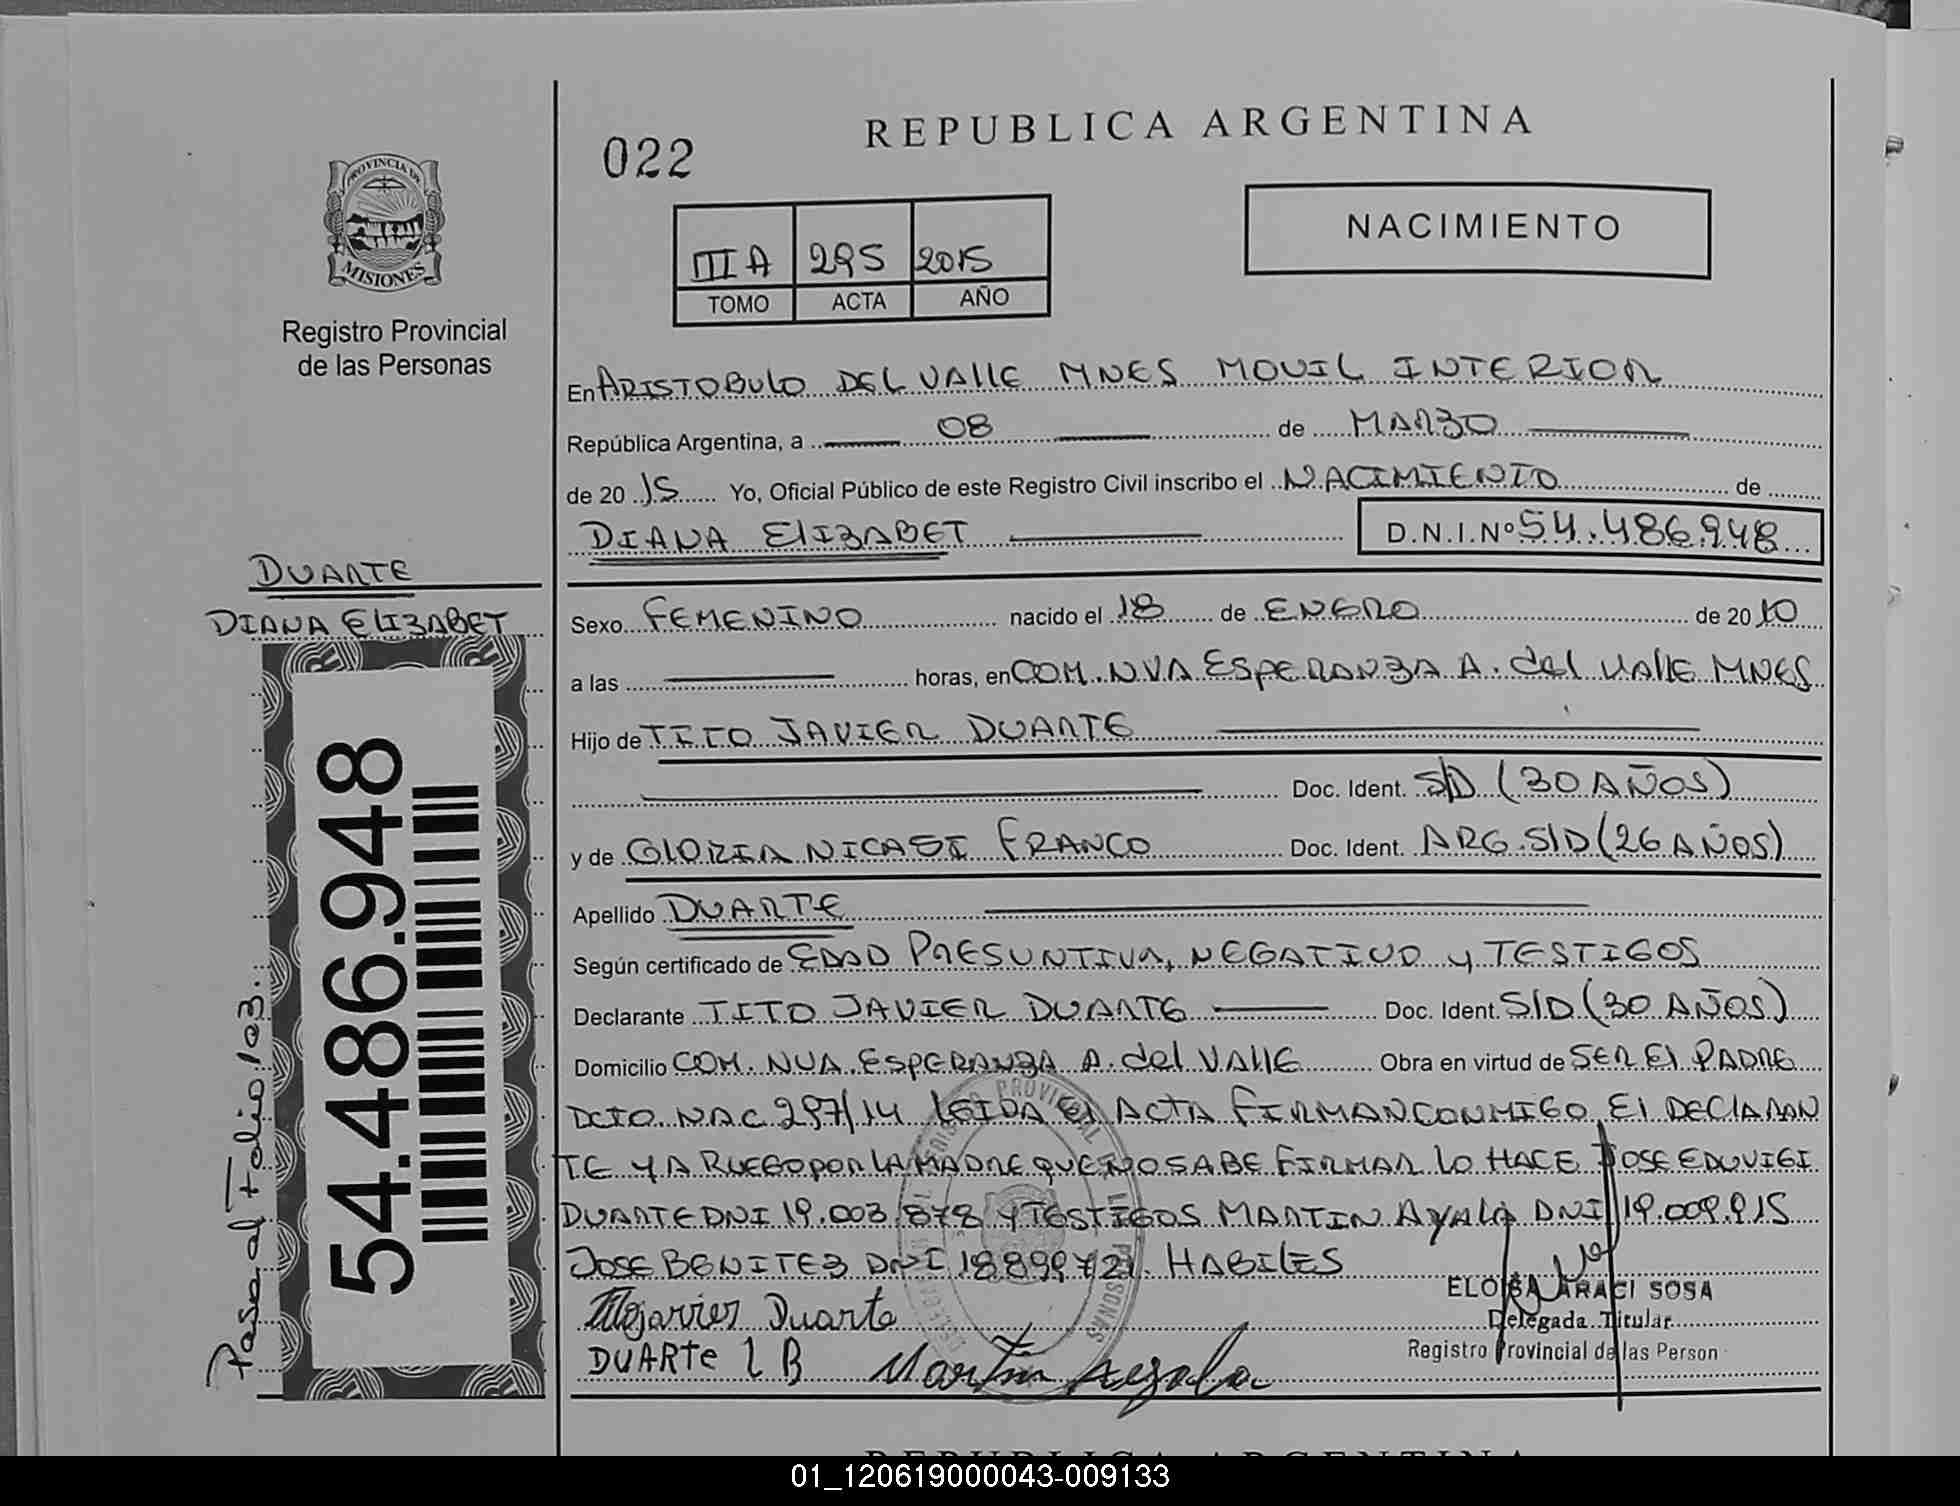 REPUBLICA ARGENTINA
022
NACIMIENTO
III A 295 2015
TOMO ACTA AÑO
PROVINCIA DE
MISIONES
Registro Provincial
de las Personas
En ARISTOBULO DEL VALLE MNES MOVIL INTERIOR
República Argentina, a 08 de MARZO
de 2015 Yo, Oficial Público de este Registro Civil inscribo el NACIMIENTO de
DIANA ELIZABET D.N.I. Nº 54.486.948
DUARTE
DIANA ELIZABET
Sexo FEMENINO nacido el 18 de ENERO de 2010
a las horas, en COM. NVA ESPERANZA A. del VALLE MNES
Hijo de TITO JAVIER DUARTE
Doc. Ident. S/D (30 AÑOS)
y de GLORIA NICASI FRANCO Doc. Ident. ARG. S/D (26 AÑOS)
Apellido DUARTE
Según certificado de EDAD PRESUNTIVA, NEGATIVO y TESTIGOS
Declarante TITO JAVIER DUARTE Doc. Ident. S/D (30 AÑOS)
Domicilio COM. NVA. ESPERANZA A. del VALLE Obra en virtud de SER EL PADRE
DCTO. NAC 297/14 LEIDA el ACTA FIRMAN CONMIGO EL DECLARAN
TE Y A RUEGO POR LA MADRE QUE NO SABE FIRMAR LO HACE JOSE EDUVIGI
DUARTE DNI 19.003.878 y TESTIGOS MARTIN AYALA DNI 19.009.915
JOSE BENITEZ DNI HABILES
Titojavier Duarte
DUARTe L B
Martin Ayala
ELOISA ARACI SOSA
Delegada Titular
Registro Provincial de las Person
54.486.948
Pasa al Folio 103..
REPUBLICA ARGENTINA
01_120619000043-009133